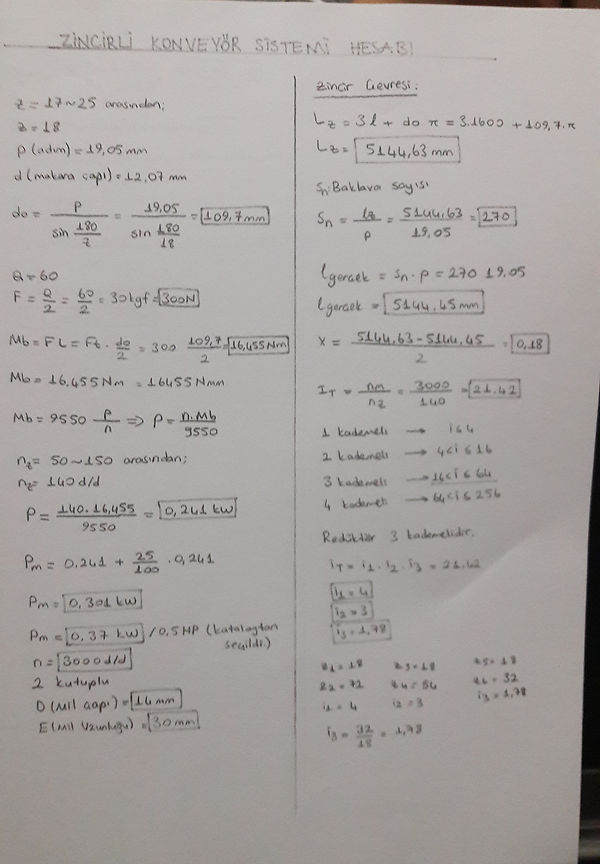 ZİNCİRLİ KONVEYÖR SİSTEMİ HESABI
z = 17~25 arasından;
z = 18
p (adım) = 19,05 mm
d (makara çapı) = 12,07 mm
do = p / sin 180/z = 19,05 / sin 180/18 = 109,7 mm
Q = 60
F = Q/2 = 60/2 = 30 kgf = 300N
Mb = F L = Ft . do/2 = 300 109,7/2 = 16,455 Nm
Mb = 16,455 Nm = 16455 Nmm
Mb = 9550 P/n ⇒ P = n.Mb/9550
nz = 50~150 arasından;
nz = 140 d/d
P = 140.16,455/9550 = 0,241 kW
Pm = 0,241 + 25/100 . 0,241
Pm = 0,301 kW
Pm = 0,37 kW / 0,5 HP (katalogtan seçildi.)
n = 3000 d/d
2 kutuplu
D (mil çapı) = 14 mm
E (mil uzunluğu) = 30 mm
Zincir Çevresi:
Lz = 3l + do π = 3.1600 + 109,7.π
Lz = 5144,63 mm
Sn: Baklava sayısı
Sn = Lz/p = 5144,63/19,05 = 270
lgercek = Sn . p = 270 19,05
lgercek = 5144,45 mm
X = 5144,63 - 5144,45 / 2 = 0,18
IT = nm/nz = 3000/140 = 21.42
1 kademeli → i≤4
2 kademeli → 4<i≤16
3 kademeli → 14<i≤64
4 kademeli → 64<i≤256
Redüktör 3 kademelidir.
iT = i1 . i2 . i3 = 21.42
i1 = 4
i2 = 3
i3 = 1,78
z1 = 18 z3 = 18 z5 = 18
z2 = 72 z4 = 54 z6 = 32
i1 = 4 i2 = 3 i3 = 1,78
i3 = 32/18 = 1,78